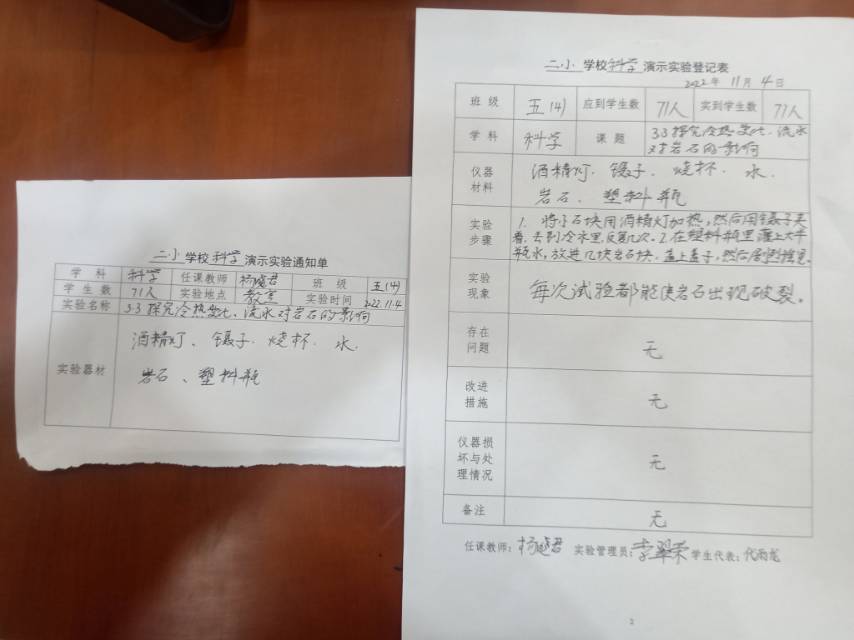 二小 学校 科学 演示实验通知单
学科 科学 任课教师 班级 五(4)
学生数 71人 实验地点 教室 实验时间 2022.11.4
实验名称 3.3 探究冷热变化、流水对岩石的影响
实验器材 酒精灯、镊子、烧杯、水、
岩石、塑料瓶
二小 学校 科学 演示实验登记表
2022年 11月 4日
班级 五(4) 应到学生数 71人 实到学生数 71人
学科 科学 课题 3.3 探究冷热变化、流水
对岩石的影响
仪器材料 酒精灯、镊子、烧杯、水、
岩石、塑料瓶
实验步骤 1. 将小石块用酒精灯加热,然后用镊子夹
着,去到冷水里,反复几次。2.在塑料瓶里灌上大半
瓶水,放进几块岩石块,盖上盖子,然后
实验现象 每次试验都能使岩石出现破裂。
存在问题 无
改进措施 无
仪器损坏与处理情况 无
备注 无
任课教师: 实验管理员:李翠荣 学生代表:代雨龙
2